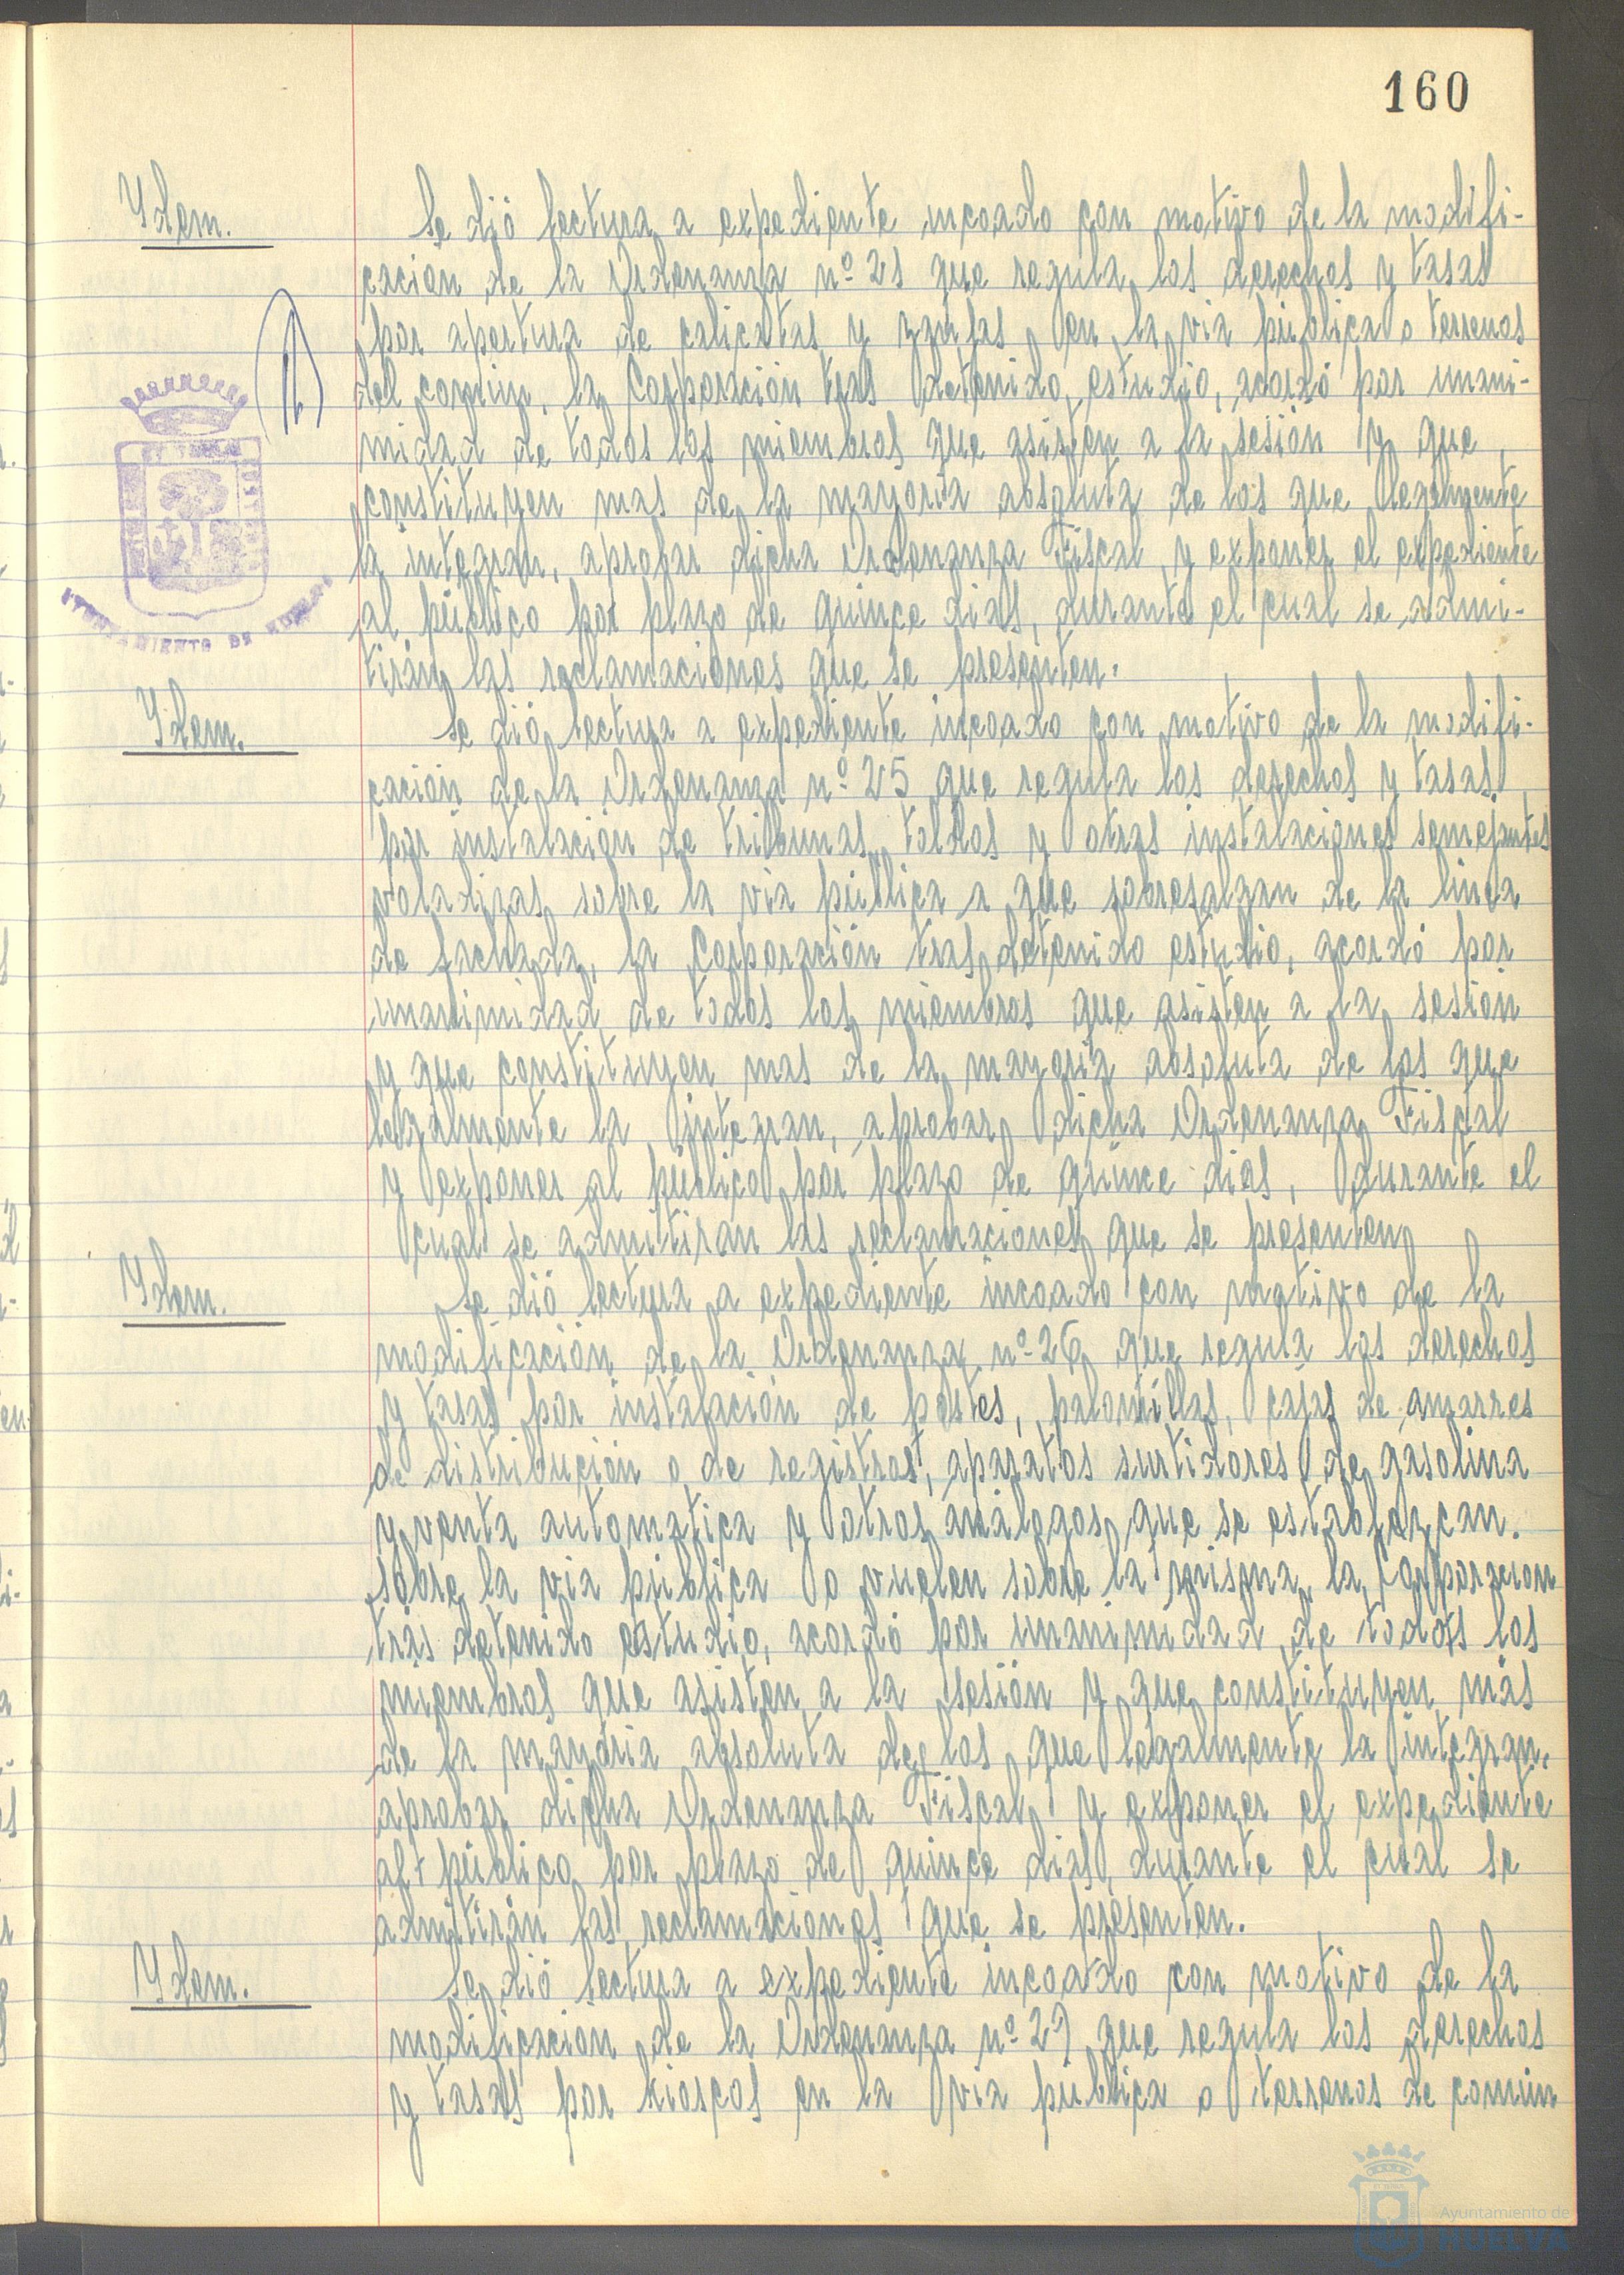 160
Ydem.
Se dió lectura a expediente incoado con motivo de la modifi-
cación de la Ordenanza nº 21 que regula los derechos y tasas
por apertura de calicatas y zanjas en la via pública o terrenos
del común, la Corporación tras detenido estudio, acordó por unani-
midad de todos los miembros que asisten a la sesión y que
constituyen mas de la mayoría absoluta de los que legalmente
la integran, aprobar dicha Ordenanza Fiscal y exponer el expediente
al público por plazo de quince dias, durante el cual se admi-
tirán las reclamaciones que se presenten.
AYUNTAMIENTO DE HUELVA
Ydem.
Se dió lectura a expediente incoado con motivo de la modifi-
cación de la Ordenanza nº 25 que regula los derechos y tasas
por instalación de tribunas, toldos y otras instalaciones semejantes
voladizas sobre la via pública o que sobresalgan de la linea
de fachada, la Corporación tras detenido estudio, acordó por
unanimidad de todos los miembros que asisten a la sesión
y que constituyen mas de la mayoría absoluta de los que
legalmente la integran, aprobar dicha Ordenanza Fiscal
y exponer al público por plazo de quince dias, durante el
cual se admitirán las reclamaciones que se presenten
Ydem.
Se dió lectura a expediente incoado con motivo de la
modificación de la Ordenanza nº 26 que regula los derechos
y tasas por instalación de postes, palomillas, cajas de amarres
de distribución o de registros, aparatos surtidores de gasolina
y venta automatica y otros análogos que se establezcan.
sobre la via pública o vuelen sobre la misma, la Corporacion
trás detenido estudio, acordó por unanimidad de todos los
miembros que asisten a la sesión y que constituyen más
de la mayoria absoluta de los que legalmente la integran,
aprobar dicha Ordenanza Fiscal y exponer el expediente
al público por plazo de quince dias, durante el cual se
admitirán las reclamaciones que se presenten.
Ydem.
Se dió lectura a expediente incoado con motivo de la
modificacion de la Ordenanza nº 27 que regula los derechos
y tasas por kioscos en la via pública o terrenos de común
Ayuntamiento de
HUELVA